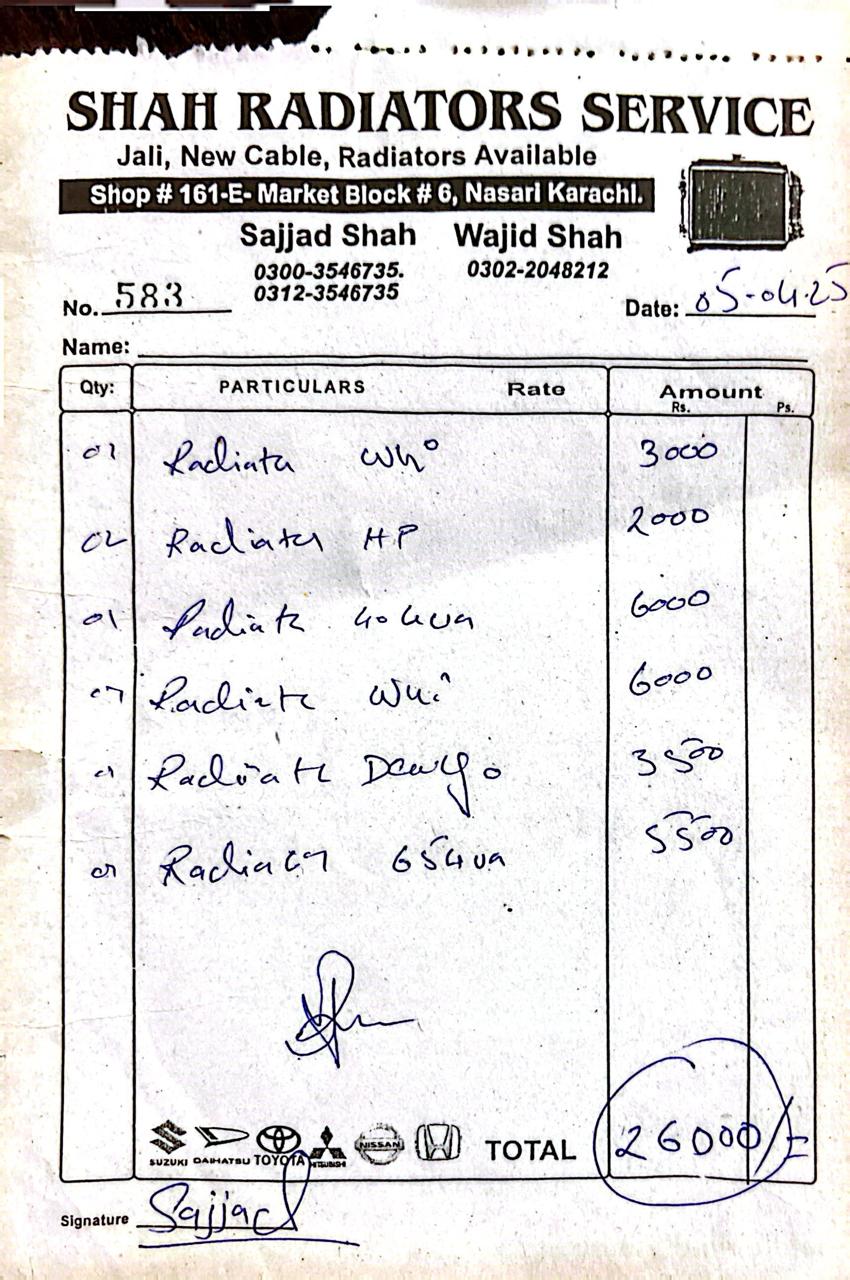 SHAH RADIATORS SERVICE
Jali, New Cable, Radiators Available
Shop # 161-E- Market Block # 6, Nasari Karachi.
Sajjad Shah Wajid Shah
0300-3546735. 0302-2048212
0312-3546735
No. 583 Date: 05-04-25
Name:
Qty: PARTICULARS Rate Amount
Rs. Ps.
01 Radiator 3000
02 Radiator HP 2000
01 Radiator 40 kva 6000
Radiator 6000
Radiator 3500
01 Radiator 65 kva 5500
SUZUKI DAIHATSU TOYOTA MITSUBISHI NISSAN TOTAL 26000/=
Signature Sajjad